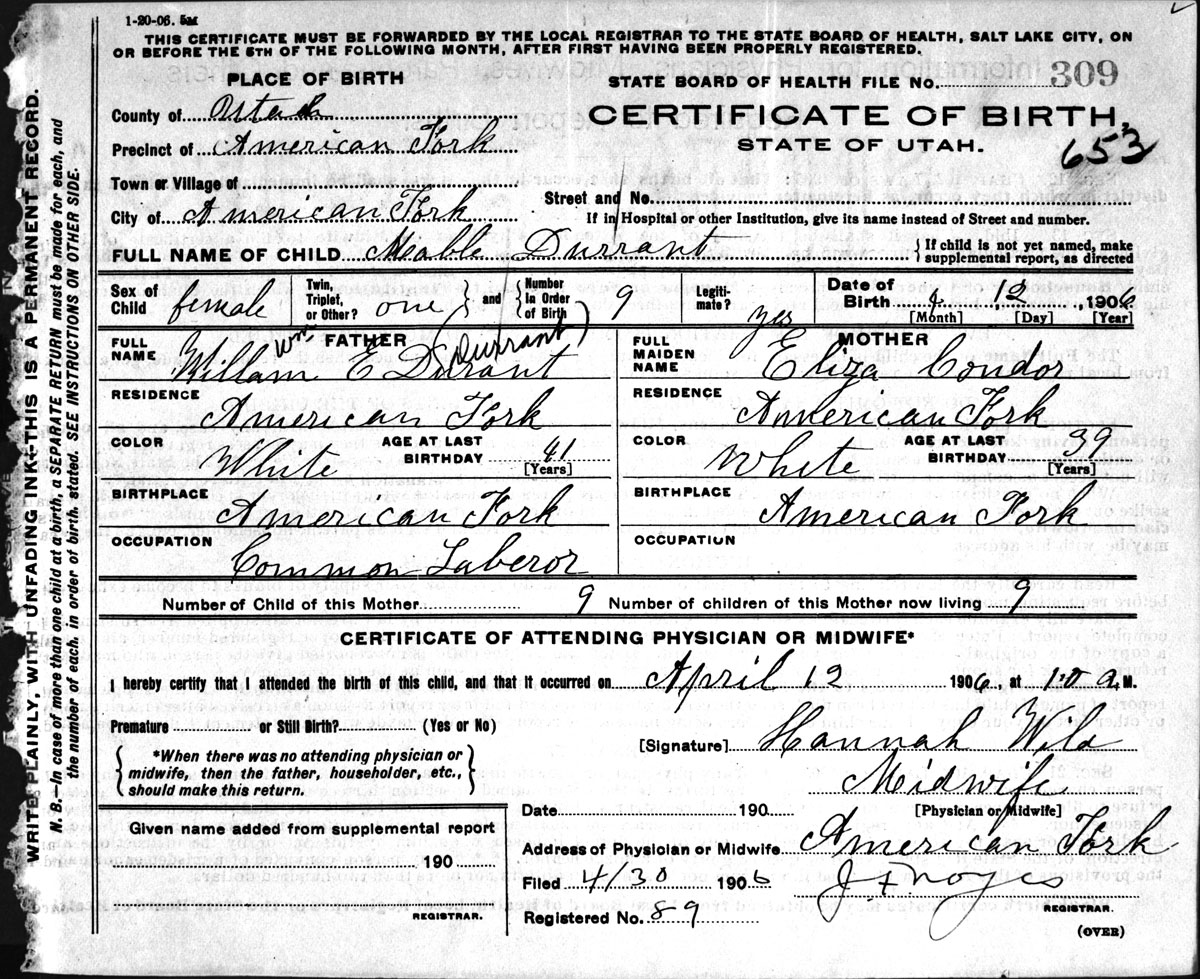 1-20-06. 5M
THIS CERTIFICATE MUST BE FORWARDED BY THE LOCAL REGISTRAR TO THE STATE BOARD OF HEALTH, SALT LAKE CITY, ON
OR BEFORE THE 5TH OF THE FOLLOWING MONTH, AFTER FIRST HAVING BEEN PROPERLY REGISTERED.
WRITE PLAINLY, WITH UNFADING INK—THIS IS A PERMANENT RECORD.
N. B.—In case of more than one child at a birth, a SEPARATE RETURN must be made for each, and
the number of each, in order of birth, stated. SEE INSTRUCTIONS ON OTHER SIDE.
PLACE OF BIRTH
County of Utah
Precinct of American Fork
Town or Village of
City of American Fork
STATE BOARD OF HEALTH FILE No. 309
CERTIFICATE OF BIRTH,
STATE OF UTAH.
653
Street and No.
If in Hospital or other Institution, give its name instead of Street and number.
FULL NAME OF CHILD Mable Durrant
If child is not yet named, make
supplemental report, as directed
Sex of Child female
Twin, Triplet, or Other? one and Number In Order of Birth 9
Legitimate? yes
Date of Birth 12, 1906
[Month] [Day] [Year]
FATHER
FULL NAME Wm (Durrant)
Willam E Durant
RESIDENCE
American Fork
COLOR White AGE AT LAST BIRTHDAY 41
[Years]
BIRTHPLACE
American Fork
OCCUPATION
Common Laberor
MOTHER
FULL MAIDEN NAME Eliza Condor
RESIDENCE
American Fork
COLOR White AGE AT LAST BIRTHDAY 39
[Years]
BIRTHPLACE
American Fork
OCCUPATION
Number of Child of this Mother 9 Number of children of this Mother now living 9
CERTIFICATE OF ATTENDING PHYSICIAN OR MIDWIFE*
I hereby certify that I attended the birth of this child, and that it occurred on April 12 1906, at 10 a.M.
Premature or Still Birth? (Yes or No)
*When there was no attending physician or
midwife, then the father, householder, etc.,
should make this return.
[Signature] Hannah Wild
Midwife
[Physician or Midwife]
Date 190
Given name added from supplemental report
190
REGISTRAR.
Address of Physician or Midwife American Fork
Filed 4/30 1906 J F Noyes
REGISTRAR.
Registered No. 89
(OVER)